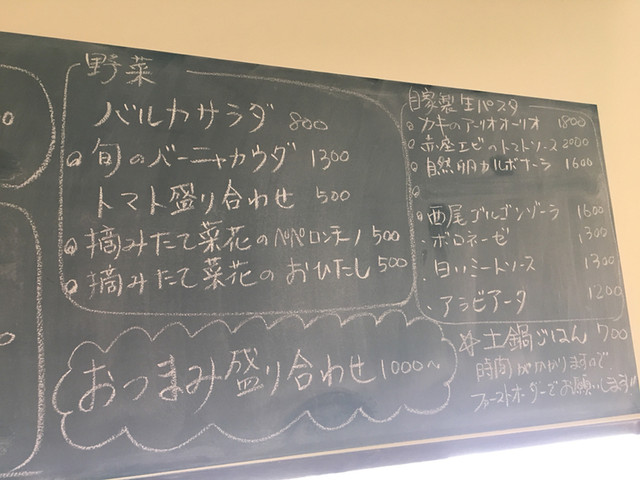 野菜
バルカサラダ 800
旬のバーニャカウダ 1300
トマト盛り合わせ 500
摘みたて菜花のペペロンチーノ 500
摘みたて菜花のおひたし 500
おつまみ盛り合わせ 1000~
自家製生パスタ
カキのアーリオオーリオ 1800
赤座エビのトマトソース 2000
自然卵カルボナーラ 1600
西尾ゴルゴンゾーラ 1600
・ボロネーゼ 1300
・白いミートソース 1300
・アラビアータ 1200
土鍋ごはん 700
時間がかかりますので
ファーストオーダーでお願いします!!